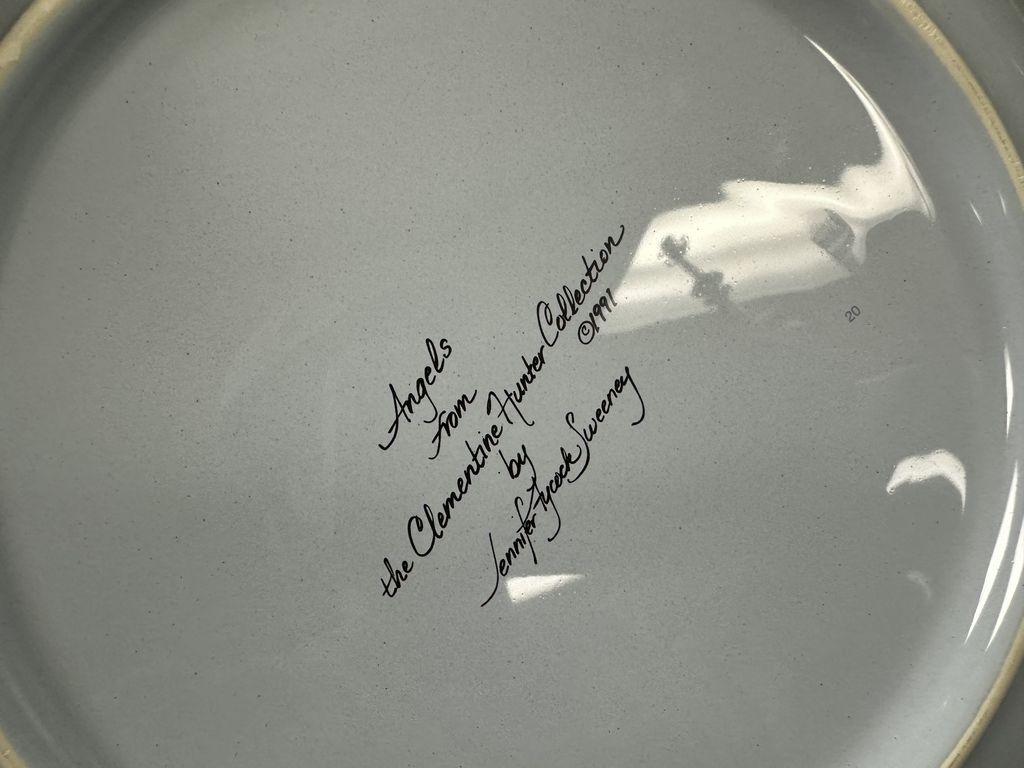 Angels
From
the Clementine Hunter Collection
©1991
by
Jennifer Tycock Sweeney
20